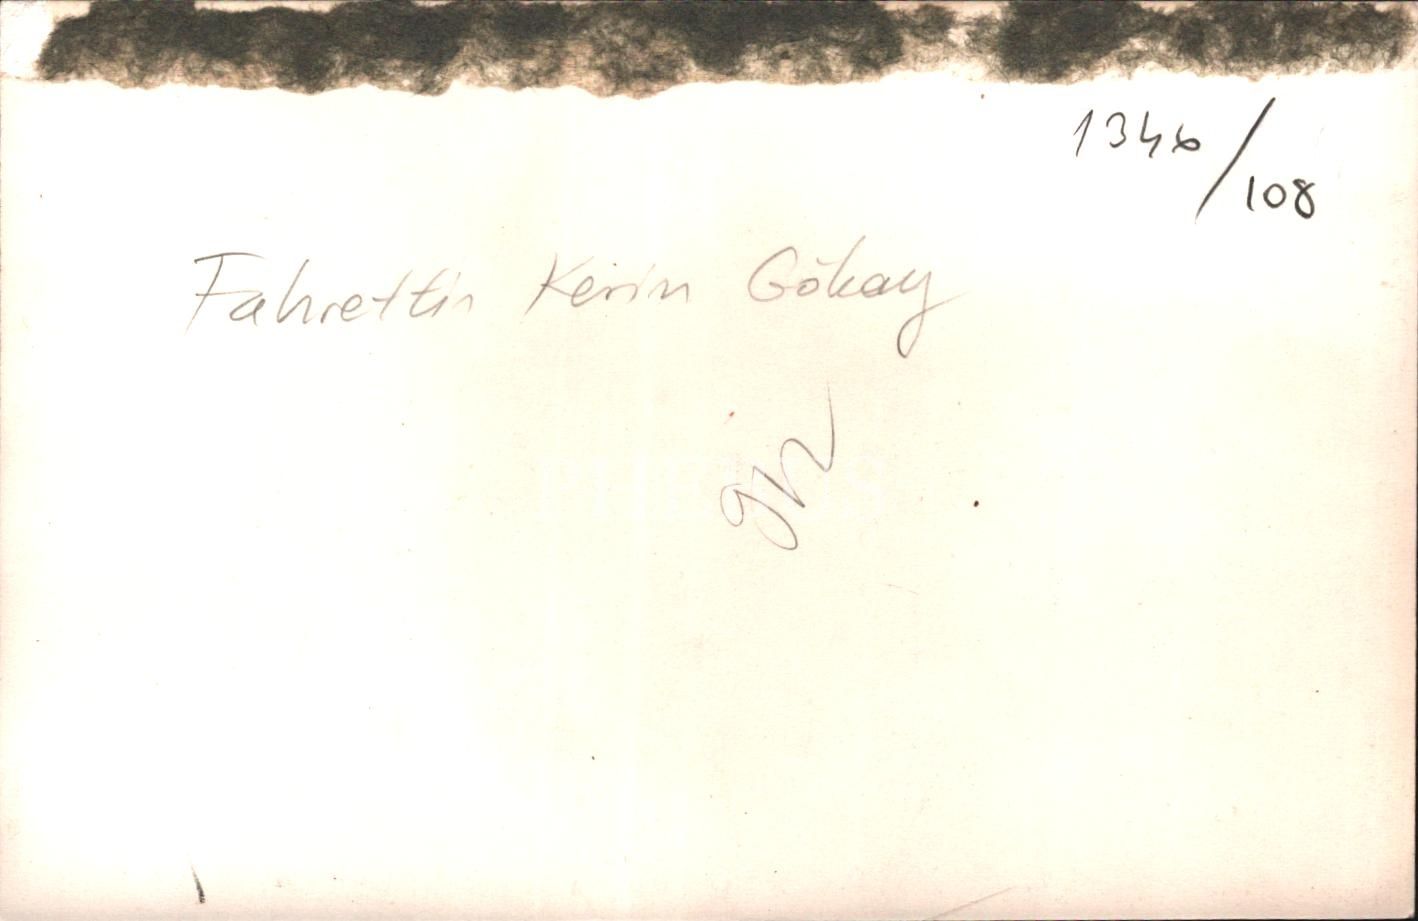 1346/108
Fahrettin Kerim Gökay